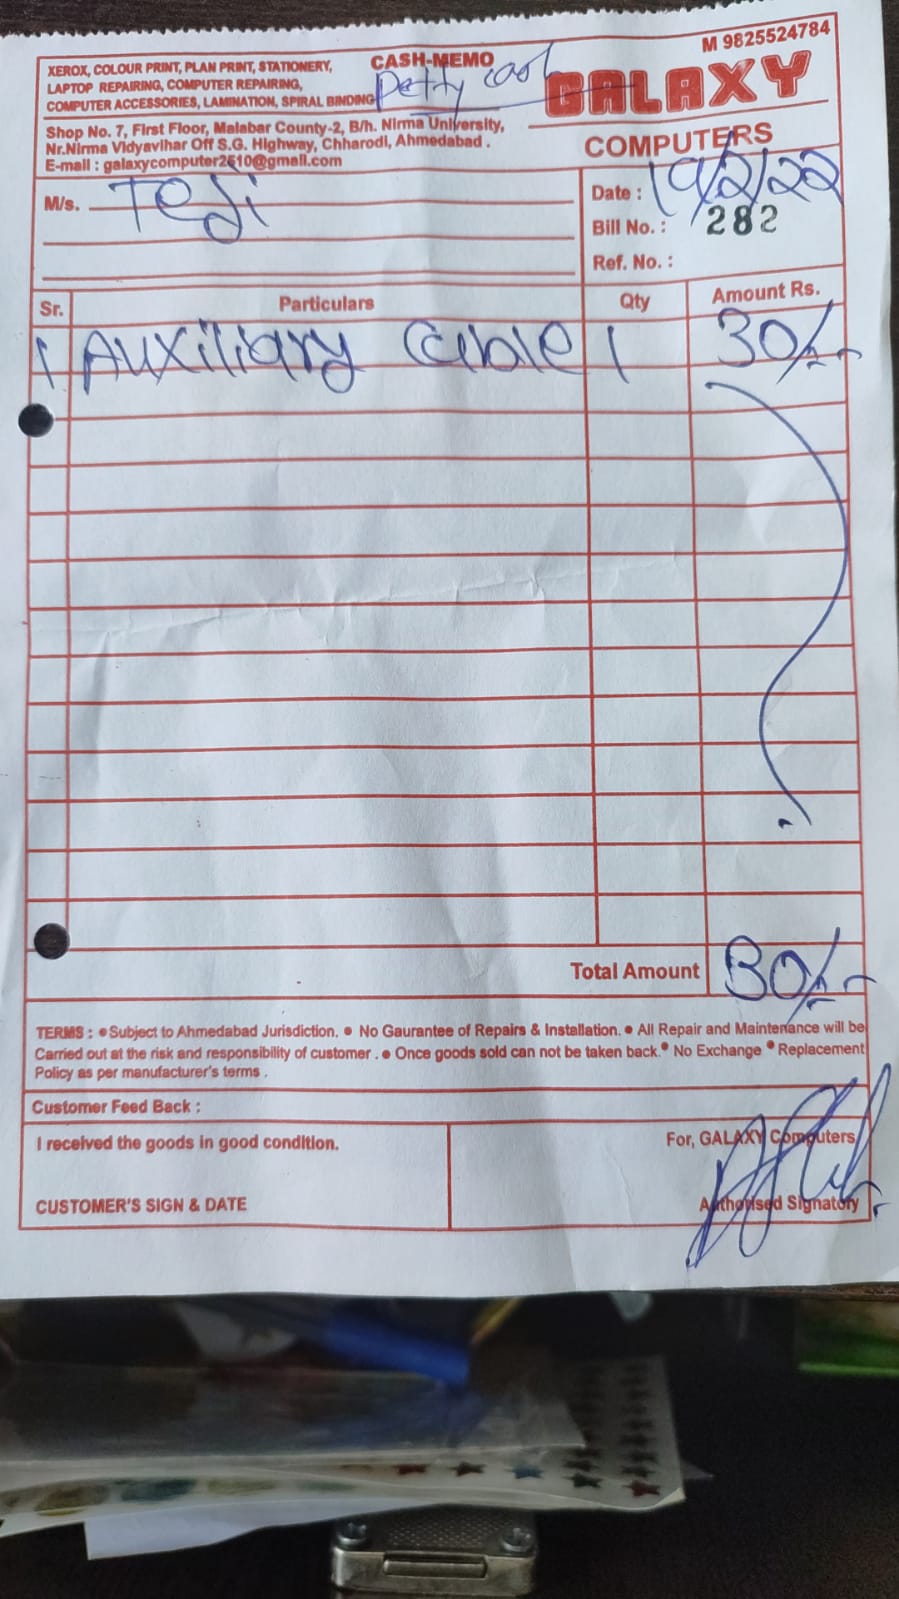 M 9825524784
XEROX, COLOUR PRINT, PLAN PRINT, STATIONERY,
LAPTOP REPAIRING, COMPUTER REPAIRING,
COMPUTER ACCESSORIES, LAMINATION, SPIRAL BINDING
CASH-MEMO
Petty cash
GALAXY
COMPUTERS
Shop No. 7, First Floor, Malabar County-2, B/h. Nirma University,
Nr.Nirma Vidyavihar Off S.G. Highway, Chharodi, Ahmedabad .
E-mail : galaxycomputer2610@gmail.com
M/s. Teji
Date : 19/2/22
Bill No. : 282
Ref. No. :
Sr. Particulars Qty Amount Rs.
1 Auxiliary Cable 1 30/-
Total Amount 30/-
TERMS : • Subject to Ahmedabad Jurisdiction. • No Gaurantee of Repairs & Installation. • All Repair and Maintenance will be
Carried out at the risk and responsibility of customer . • Once goods sold can not be taken back. • No Exchange • Replacement
Policy as per manufacturer's terms .
Customer Feed Back :
I received the goods in good condition.
For, GALAXY Computers
CUSTOMER'S SIGN & DATE
Authorised Signatory